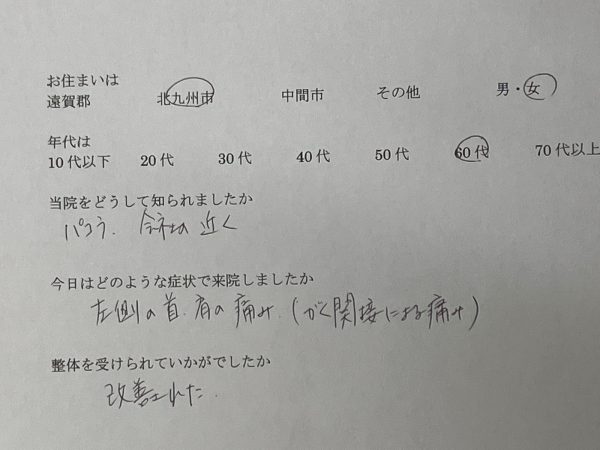 お住まいは
遠賀郡 北九州市 中間市 その他 男・女
年代は
10代以下 20代 30代 40代 50代 60代 70代以上
当院をどうして知られましたか
パコラ. 会社の近く
今日はどのような症状で来院しましたか
左側の首.肩の痛み.(がく関接による痛み)
整体を受けられていかがでしたか
改善された.